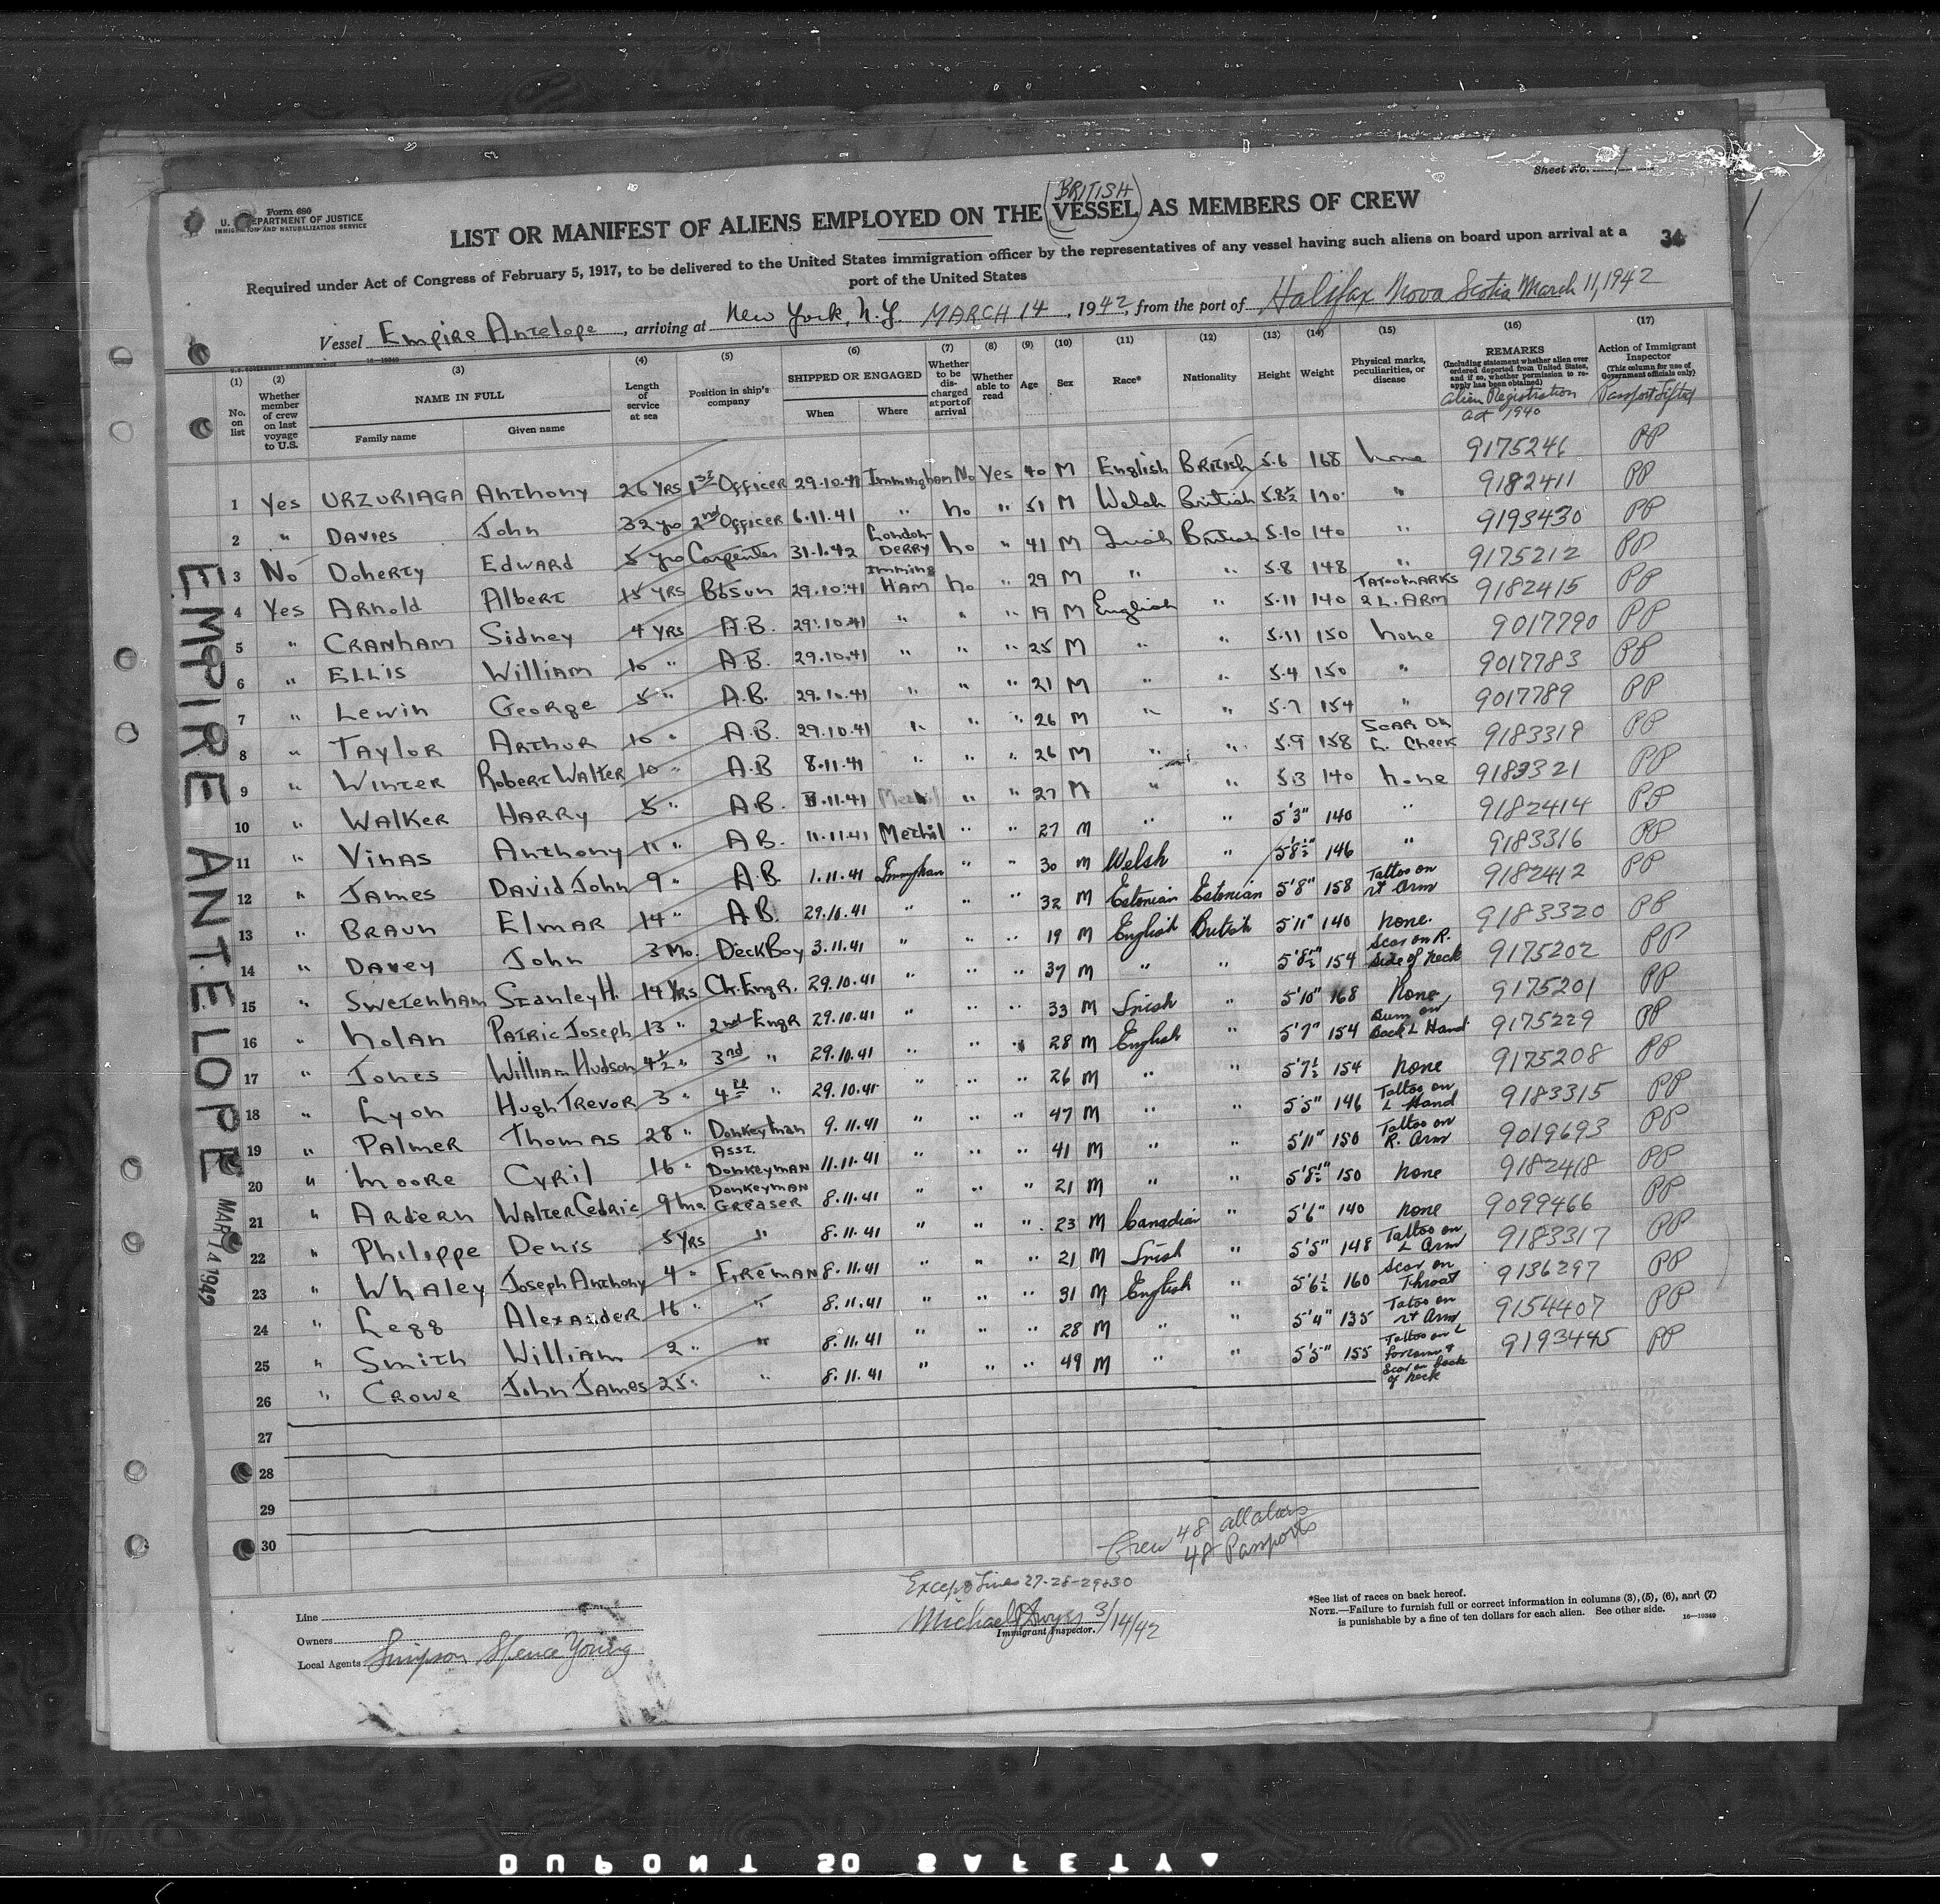 Sheet No. 1
Form 680
U. S. DEPARTMENT OF JUSTICE
IMMIGRATION AND NATURALIZATION SERVICE
BRITISH
LIST OR MANIFEST OF ALIENS EMPLOYED ON THE VESSEL AS MEMBERS OF CREW
34
Required under Act of Congress of February 5, 1917, to be delivered to the United States immigration officer by the representatives of any vessel having such aliens on board upon arrival at a
port of the United States
Vessel Empire Antelope, arriving at New York, N.Y. MARCH 14, 1942, from the port of Halifax Nova Scotia March 11, 1942
16—19349 U.S. GOVERNMENT PRINTING OFFICE
(1) No. on list
(2) Whether member of crew on last voyage to U.S.
(3) NAME IN FULL Family name Given name
(4) Length of service at sea
(5) Position in ship's company
(6) SHIPPED OR ENGAGED When Where
(7) Whether to be discharged at port of arrival
(8) Whether able to read
(9) Age
(10) Sex
(11) Race*
(12) Nationality
(13) Height
(14) Weight
(15) Physical marks, peculiarities, or disease
(16) REMARKS (Including statement whether alien ever ordered deported from United States, and if so, whether permission to reapply has been obtained) Alien Registration Act 1940
(17) Action of Immigrant Inspector (This column for use of Government officials only) Passport Lifted
1 Yes URZURIAGA Anthony 26 YRS 1st Officer 29.10.41 Immingham No Yes 40 M English British 5.6 168 none 9175246 PP
2 " DAVIES John 32 yrs 2nd Officer 6.11.41 " no " 51 M Welsh British 5.8½ 170 " 9182411 PP
3 No Doherty EDWARD 5 yrs Carpenter 31.1.42 LONDONDERRY no " 41 M Irish British 5.10 140 " 9193430 PP
4 Yes Arnold Albert 15 YRS Bosun 29.10.41 IMMINGHAM no " 29 M " " 5.8 148 " 9175212 PP
5 " CRANHAM Sidney 4 YRS A.B. 29.10.41 " " " 19 M English " 5.11 140 TATOO MARKS 2 L. ARM 9182415 PP
6 " ELLIS William 10 " A.B. 29.10.41 " " " 25 M " " 5.11 150 none 9017790 PP
7 " Lewin George 5 " A.B. 29.10.41 " " " 21 M " " 5.4 150 " 9017783 PP
8 " TAYLOR ARTHUR 10 " A.B. 29.10.41 " " " 26 M " " 5.7 154 " 9017789 PP
9 " WINTER Robert Walter 10 " A.B 8.11.41 " " " 26 M " " 5.9 158 SCAR ON L. Cheek 9183319 PP
10 " WALKER HARRY 5 " A.B. 11.41 Methil " " 27 M " " 5.3 140 none 9183321 PP
11 " Vinas Anthony 11 " A.B. 11.11.41 Methil " " 27 M " " 5'3" 140 " 9182414 PP
12 " JAMES DAVID John 9 " A.B. 1.11.41 Immingham " " 30 M Welsh " 5'8½" 146 " 9183316 PP
13 " BRAUN ELMAR 14 " A.B. 29.10.41 " " " 32 M Estonian Estonian 5'8" 158 Tattoo on rt arm 9182412 PP
14 " DAVEY John 3 Mo. Deck Boy 3.11.41 " " " 19 M English British 5'11" 140 none. 9183320 PP
15 " Swetenham Stanley H. 14 Yrs Ch. Engr. 29.10.41 " " " 37 M " " 5'8½" 154 Scar on R. side of neck 9175202 PP
16 " Nolan PATRIC Joseph 13 " 2nd Engr 29.10.41 " " " 33 M Irish " 5'10" 168 none 9175201 PP
17 " Jones William Hudson 4½ " 3rd " 29.10.41 " " " 28 M English " 5'7" 154 Burn on Back L Hand 9175229 PP
18 " Lyon Hugh TREVOR 3 " 4th " 29.10.41 " " " 26 M " " 5'7½ 154 none 9175208 PP
19 " PALMER THOMAS 28 " Donkeyman 9.11.41 " " " 47 M " " 5'5" 146 Tattoo on L Hand 9183315 PP
20 " Moore Cyril 16 " Asst. Donkeyman 11.11.41 " " " 41 M " " 5'11" 150 Tattoo on R. Arm 9019693 PP
21 " Ardern Walter Cedric 9 mo. Donkeyman Greaser 8.11.41 " " " 21 M " " 5'8½" 150 none 9182418 PP
22 " Philippe Denis 5 YRS " 8.11.41 " " " 23 M Canadian " 5'6" 140 none 9099466 PP
23 " Whaley Joseph Anthony 4 " FIREMAN 8.11.41 " " " 21 M Irish " 5'5" 148 Tattoo on L Arm 9183317 PP
24 " Legg Alexander 16 " " 8.11.41 " " " 31 M English " 5'6½ 160 Scar on Throat 9136297 PP
25 " Smith William 2 " " 8.11.41 " " " 28 M " " 5'4" 135 Tatoo on rt arm 9154407 PP
26 " Crowe John James 25 " " 8.11.41 " " " 49 M " " 5'5" 155 Tattoo on L forearm & Scar on back of neck 9193445 PP
27
28
29
30
EMPIRE ANTELOPE MAR 14 1942
Crew 48 all aliens
48 Passports
Except Lines 27-28-29&30
Line
Owners
Local Agents Simpson Spence Young
Michael J Dwyer 3/14/42
Immigrant Inspector.
*See list of races on back hereof.
NOTE.—Failure to furnish full or correct information in columns (3), (5), (6), and (7)
is punishable by a fine of ten dollars for each alien. See other side. 16—19349
DUPONT SO SAFETY